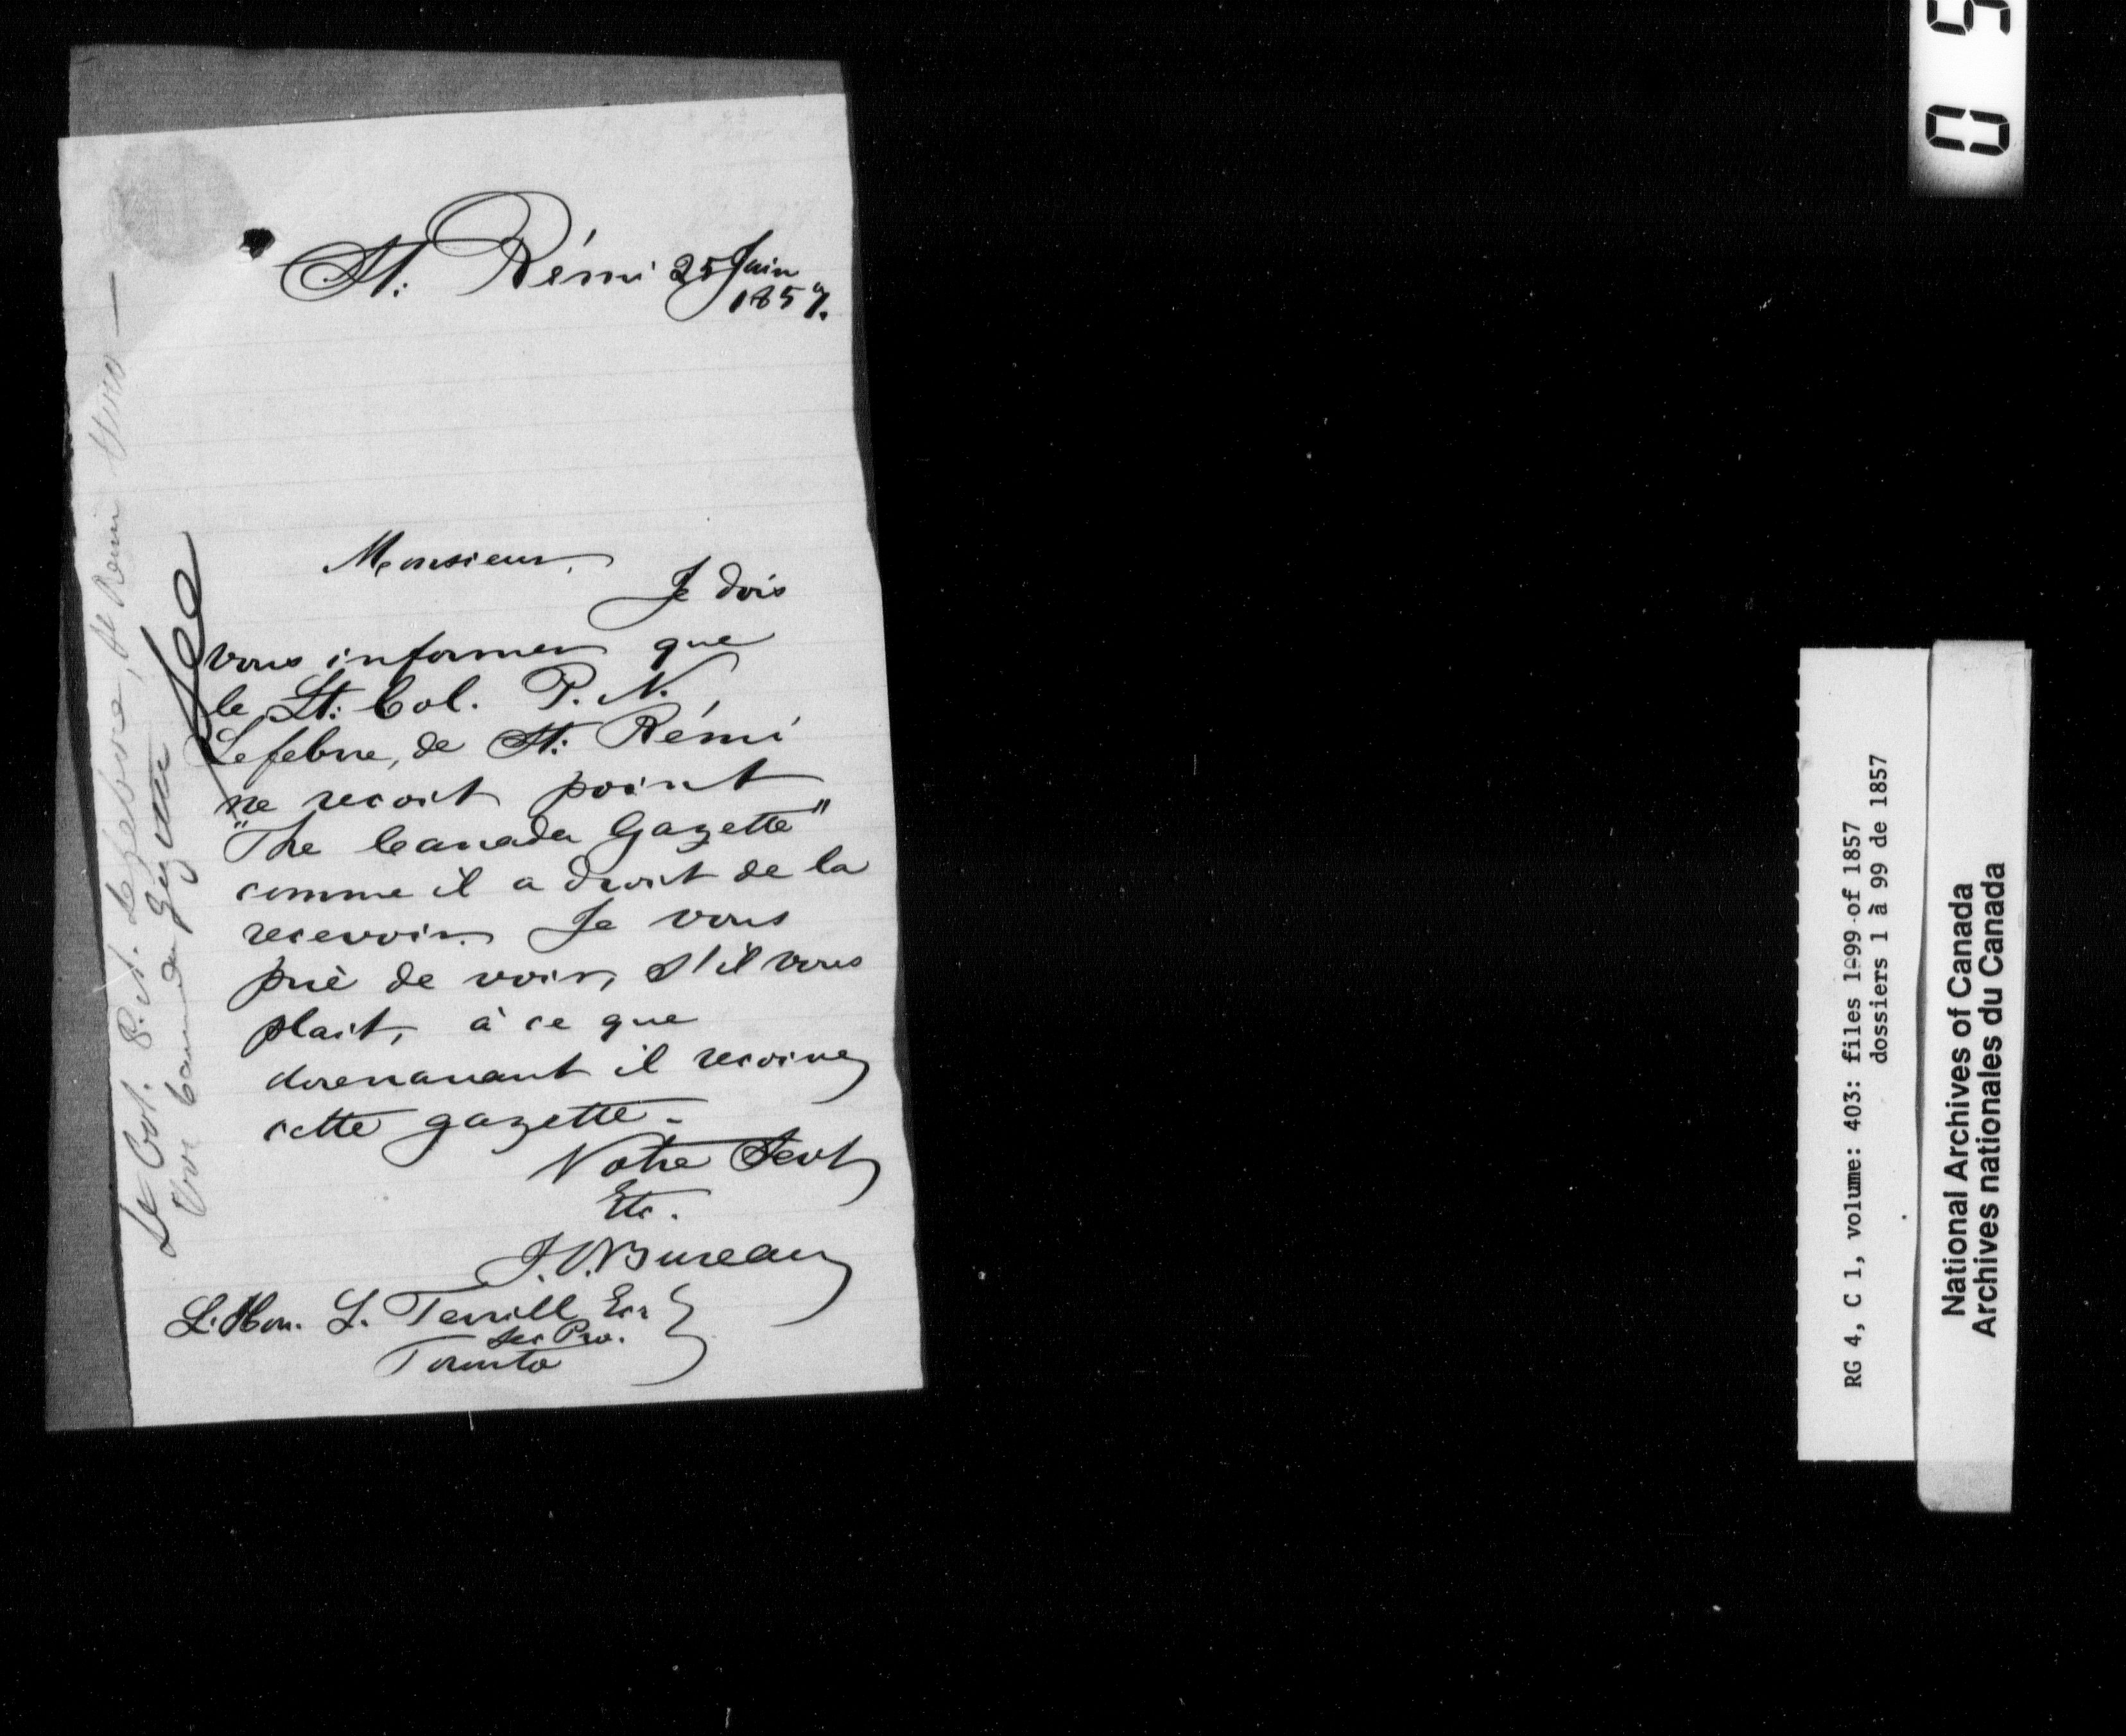 St: Rémi 25 Juin
1857.
Monsieur,
Je dois
vous informer que
le Lt: Col. P. N.
Lefebvre, de St: Rémi
ne recoit point
"The Canada Gazette"
comme il a droit de la
recevoir. Je vous
prie de voir, s'il vous
plait, à ce que
dorenavant il recoive
cette gazette.
Votre Servt
Etc.
J. O. Bureau
L. Hon. L. Terrill Ecr
Sec Pro.
Toronto
Lt Col. P. N. Lefebvre, St Remi
Canada Gazette
0 5
RG 4, C 1, volume: 403: files 1-99 of 1857
dossiers 1 à 99 de 1857
National Archives of Canada
Archives nationales du Canada